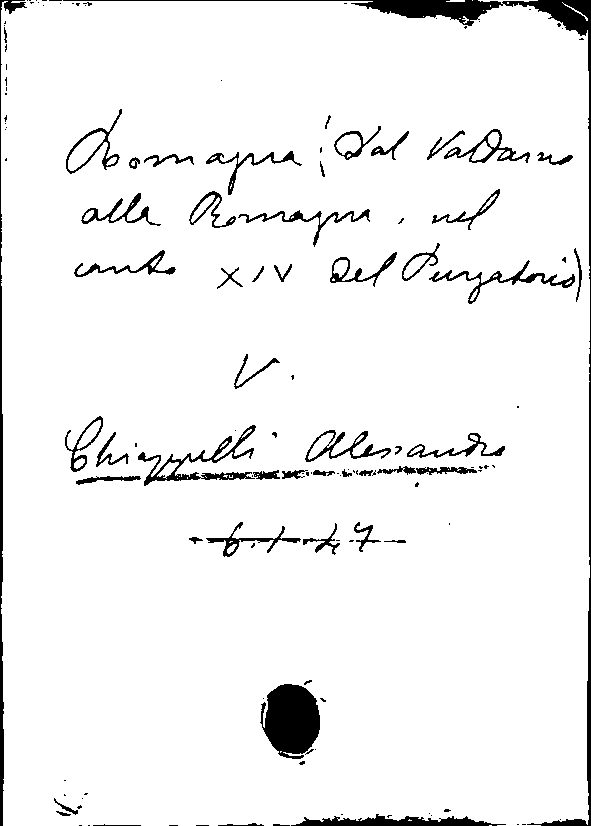 Romagna (Dal Valdarno
alla Romagna, nel
canto XIV del Purgatorio)
V.
Chiappelli Alessandro
6.1.47